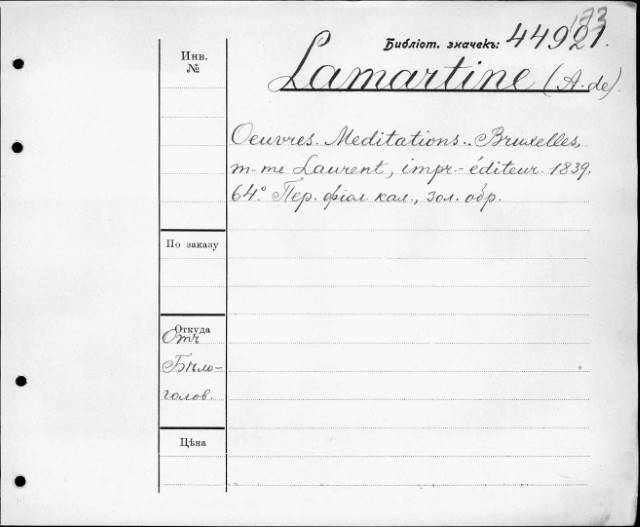 173
Библіот. значекъ: 44921.
Инв.
№
Lamartine (A. de).
Oeuvres. Meditations.. Bruxelles,
m-me Laurent, impr.-éditeur. 1839.
64°. Пер. фіол. кал., зол. обр.
По заказу
Откуда
Отъ
Бѣло-
голов.
Цѣна